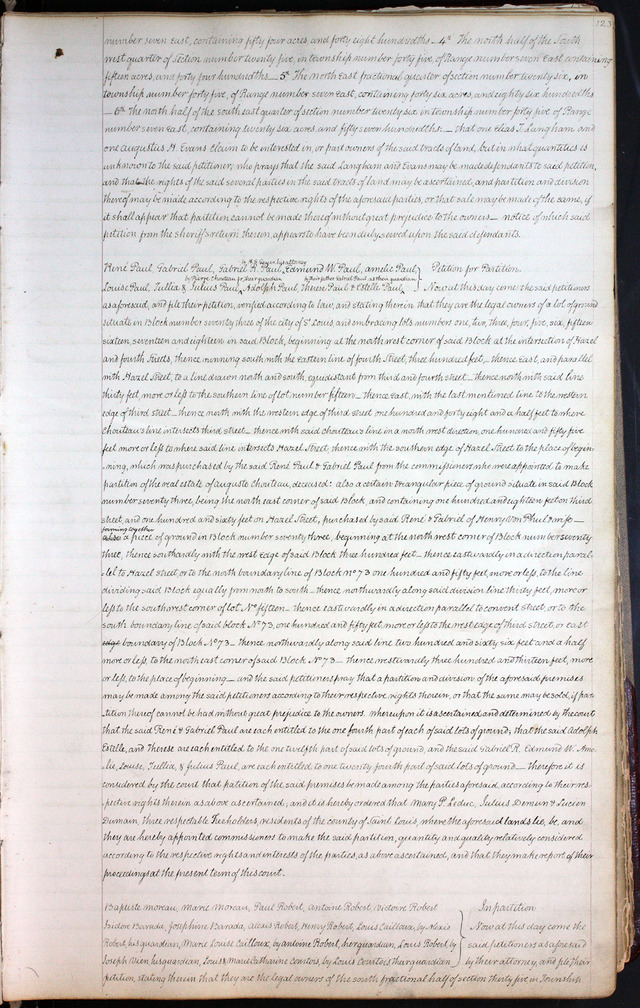 123
number seven East, containing fifty four acres, and forty eight hundredths — 4th The north half of the South
west quarter of section number twenty five, in township number forty five, of Range number seven East containing
fifteen acres, and forty four hundredths — 5th The north East fractional quarter of section number twenty six, in
township number forty five, of Range number seven East, containing forty six acres, and eighty six hundredths
— 6th The north half of the south east quarter of section number twenty six in township number forty five of Range
number seven east, containing twenty six acres and fifty seven hundredths: — that one Elias T. Langham and
one Augustus H. Evans claim to be interested in, or part owners of the said tracts of land, but in what quantities is
unknown to the said petitioner; who prays that the said Langham and Evans may be made defendants to said petition,
and that the rights of the said several parties in the said tracts of land may be ascertained, and partition and division
thereof may be made according to the respective rights of the aforesaid parties, or that sale may be made of the same, if
it shall appear that partition cannot be made thereof without great prejudice to the owners — notice of which said
petition from the sheriff's return therein, appears to have been duly served upon the said defendants.
René Paul, Gabriel Paul, Gabriel R. Paul, Edmund W. Paul, Amelie Paul Petition for Partition
by Pierre Chouteau Jr their guardian by their father Gabriel Paul, as their guardian
Louise Paul, Tullia & Julius Paul, Adolph Paul, Therese Paul & Estelle Paul Now at this day come the said petitioners
as aforesaid, and file their petition, verified according to law, and stating therein that they are the legal owners of a lot of ground
situate in Block number seventy three of the city of St Louis, and embracing lots numbers one, two, three, four, five, six, fifteen
sixteen, seventeen and eighteen in said Block, beginning at the north west corner of said Block at the intersection of Hazel
and fourth Streets, thence running south with the eastern line of fourth Street, three hundred feet — thence East, and parallel
with Hazel Street, to a line drawn north and south, equidistant from third and fourth street — thence north with said line
thirty feet, more or less to the southern line of lot number fifteen — thence east, with the last mentioned line to the western
edge of third street — thence north with the western edge of third street one hundred and forty eight and a half feet to where
Chouteau's line intersects third street — thence with said Chouteau's line in a north west direction, one hundred and fifty five
feet more or less to where said line intersects Hazel Street, thence with the southern edge of Hazel Street to the place of begin-
ning, which was purchased by the said René Paul & Gabriel Paul from the commissioners who were appointed to make
partition of the real estate of Auguste Chouteau, deceased: also a certain triangular piece of ground situate in said Block
number seventy three, being the north east corner of said Block, and containing one hundred and eighteen feet on third
street, and one hundred and sixty feet on Hazel Street, purchased by said René & Gabriel of Henry Von Phul
forming together
a piece of ground in Block number seventy three, beginning at the north west corner of Block number seventy
three, thence southardly with the west Edge of said Block three hundred feet — thence eastwardly in a direction paral-
lel to Hazel street, or to the north boundary line of Block No 73 one hundred and fifty feet, more or less, to the line
dividing said Block equally from north to south — thence northwardly along said division line thirty feet, more or
less to the southwest corner of lot No fifteen — thence eastwardly in a direction parallel to convent street, or to the
south boundary line of said block No 73, one hundred and fifty feet, more or less to the west edge of third street, or east
edge boundary of Block No 73 — thence northwardly along said line two hundred and sixty six feet and a half
more or less, to the north east corner of said Block No 73 — thence westwardly three hundred and thirteen feet, more
or less, to the place of beginning — and the said petitioners pray that a partition and division of the aforesaid premises
may be made among the said petitioners according to their respective rights therein, or that the same may be sold, if par-
tition thereof cannot be had without great prejudice to the owners. whereupon it is ascertained and determined by the court
that the said René & Gabriel Paul are each entitled to the one fourth part of each of said lots of ground; that the said Adolph
Estelle, and Therese are each entitled to the one twelfth part of said lots of ground, and the said Gabriel R. Edmund W. Ame-
lie, Louise, Tullia, & Julius Paul, are each entitled to one twenty fourth part of said lots of ground — therefore it is
considered by the court that partition of the said premises be made among the parties aforesaid, according to their res-
pective rights therein as above ascertained; and it is hereby ordered that Mary P. Leduc, Julius Demun & Lucien
Dumain, three respectable freeholders, residents of the county of Saint Louis, where the aforesaid lands lie, be, and
they are hereby appointed commissioners to make the said partition, quantity and quality relatively considered
according to the respective rights and interests of the parties, as above ascertained, and that they make report of their
proceedings at the present term of this court.
Baptiste Moreau, Marie Moreau, Paul Robert, Antoine Robert, Victoire Robert In partition
Isidor Barada, Josephine Barada, Alexis Robert, Henry Robert, Louis Cailloux, by Alexis Now at this day come the
Robert, his guardian, Marie Louise Cailloux, by Antoine Robert, her guardian, Louis Robert by said petitioners as aforesaid
Joseph Vien his guardian, Louis & Marie Catharine Courtois, by Louis Courtois their guardian by their attorney, and file their
petition, stating therein that they are the legal owners of the south fractional half of section thirty five in Township